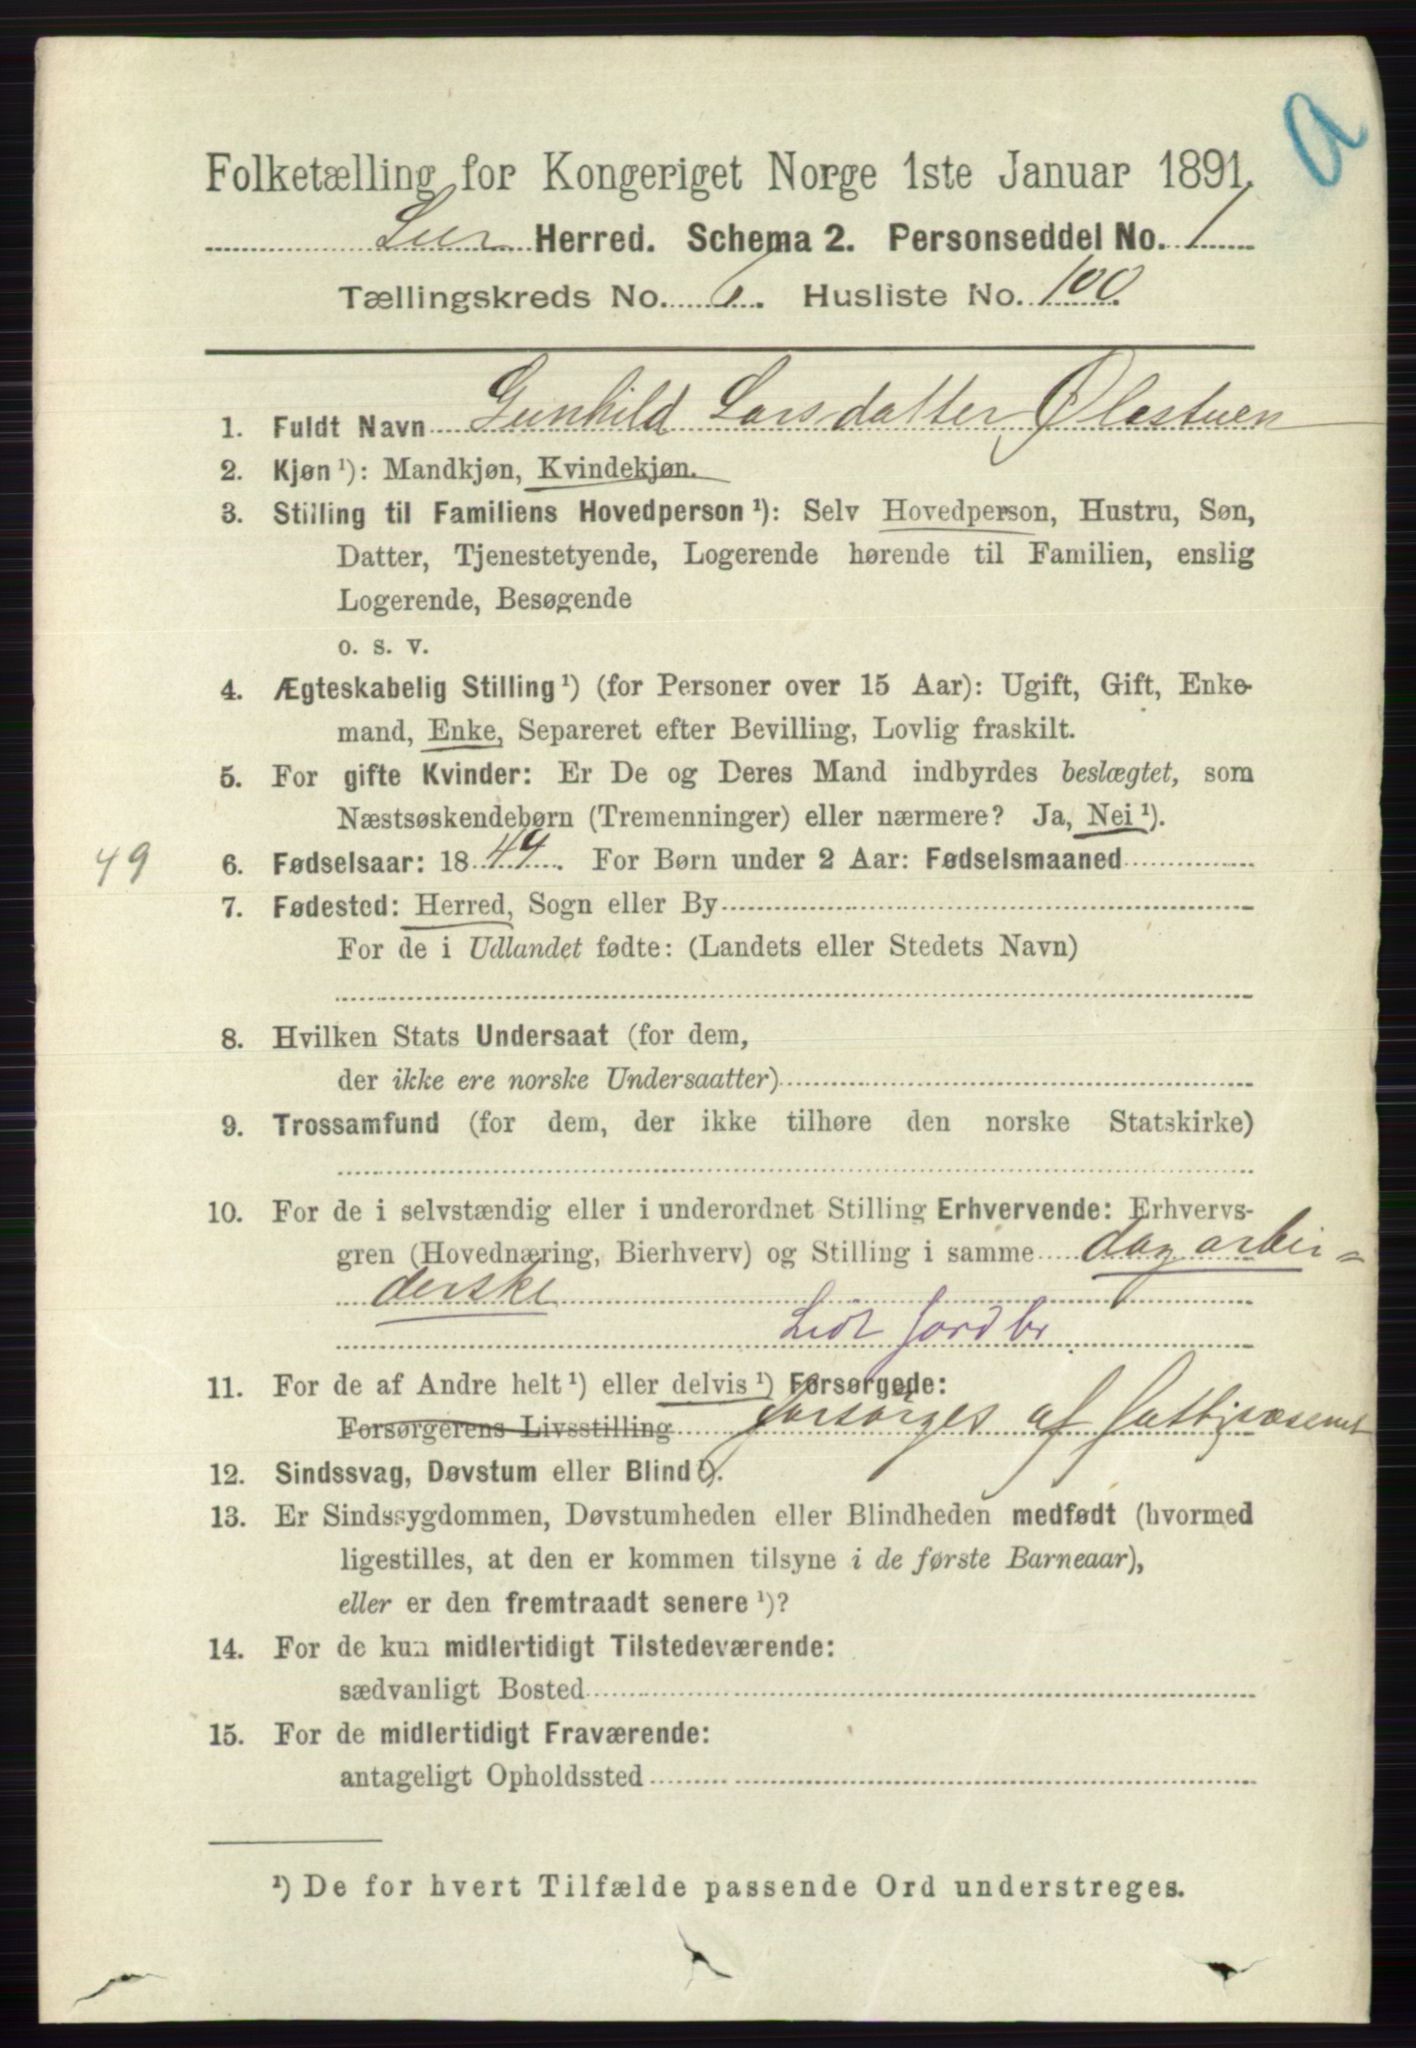 Folketælling for Kongeriget Norge 1ste Januar 1891.
Lier Herred. Schema 2. Personseddel No. 1
Tællingskreds No. Husliste No. 100.
1. Fuldt Navn Gunhild Larsdatter Olestuen
2. Kjøn ¹): Mandkjøn, Kvindekjøn.
3. Stilling til Familiens Hovedperson ¹): Selv Hovedperson, Hustru, Søn,
Datter, Tjenestetyende, Logerende hørende til Familien, enslig
Logerende, Besøgende
o. s. v.
4. Ægteskabelig Stilling ¹) (for Personer over 15 Aar): Ugift, Gift, Enke-
mand, Enke, Separeret efter Bevilling, Lovlig fraskilt.
5. For gifte Kvinder: Er De og Deres Mand indbyrdes beslægtet, som
Næstsøskendebørn (Tremenninger) eller nærmere? Ja, Nei ¹).
49 6. Fødselsaar: 18 49. For Børn under 2 Aar: Fødselsmaaned
7. Fødested: Herred, Sogn eller By
For de i Udlandet fødte: (Landets eller Stedets Navn)
8. Hvilken Stats Undersaat (for dem,
der ikke ere norske Undersaatter)
9. Trossamfund (for dem, der ikke tilhøre den norske Statskirke)
10. For de i selvstændig eller i underordnet Stilling Erhvervende: Erhvervs-
gren (Hovednæring, Bierhverv) og Stilling i samme dagarbei=
derske
Lidt Jordbr
11. For de af Andre helt ¹) eller delvis ¹) Forsørgede:
Forsørgerens Livsstilling forsørges af fattigvæsenet
12. Sindssvag, Døvstum eller Blind ¹).
13. Er Sindssygdommen, Døvstumheden eller Blindheden medfødt (hvormed
ligestilles, at den er kommen tilsyne i de første Barneaar),
eller er den fremtraadt senere ¹)?
14. For de kun midlertidigt Tilstedeværende:
sædvanligt Bosted
15. For de midlertidigt Fraværende:
antageligt Opholdssted
¹) De for hvert Tilfælde passende Ord understreges.